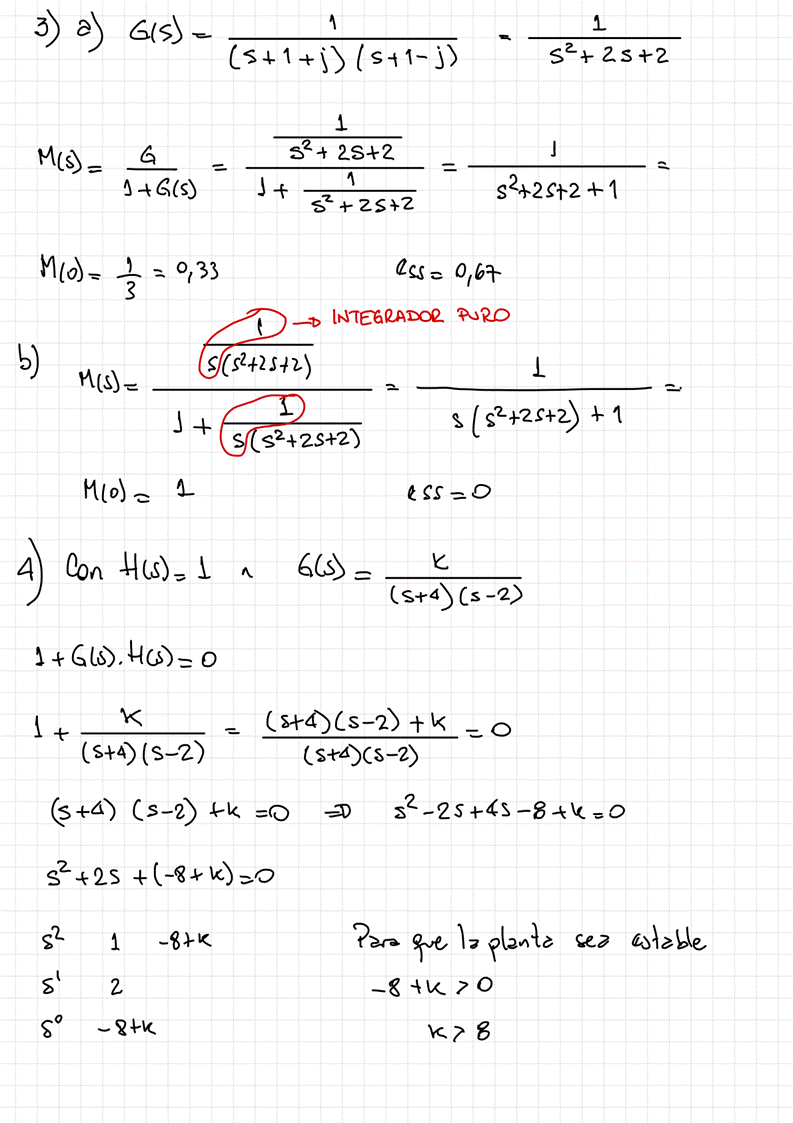 3) a) G(s) = 1 / ((s+1+j)(s+1-j)) = 1 / (s²+2s+2)
M(s) = G / (1+G(s)) = (1 / (s²+2s+2)) / (1 + 1 / (s²+2s+2)) = 1 / (s²+2s+2+1) =
M(0) = 1/3 = 0,33 ess = 0,67
→ INTEGRADOR PURO
b) M(s) = (1 / (s(s²+2s+2))) / (1 + 1 / (s(s²+2s+2))) = 1 / (s(s²+2s+2)+1) =
M(0) = 1 ess = 0
4) Con H(s) = 1 ∧ G(s) = k / ((s+4)(s-2))
1+G(s).H(s) = 0
1 + k / ((s+4)(s-2)) = ((s+4)(s-2)+k) / ((s+4)(s-2)) = 0
(s+4)(s-2)+k = 0 ⇒ s²-2s+4s-8+k = 0
s²+2s+(-8+k) = 0
s² 1 -8+k Para que la planta sea estable
s¹ 2 -8+k > 0
s⁰ -8+k k > 8